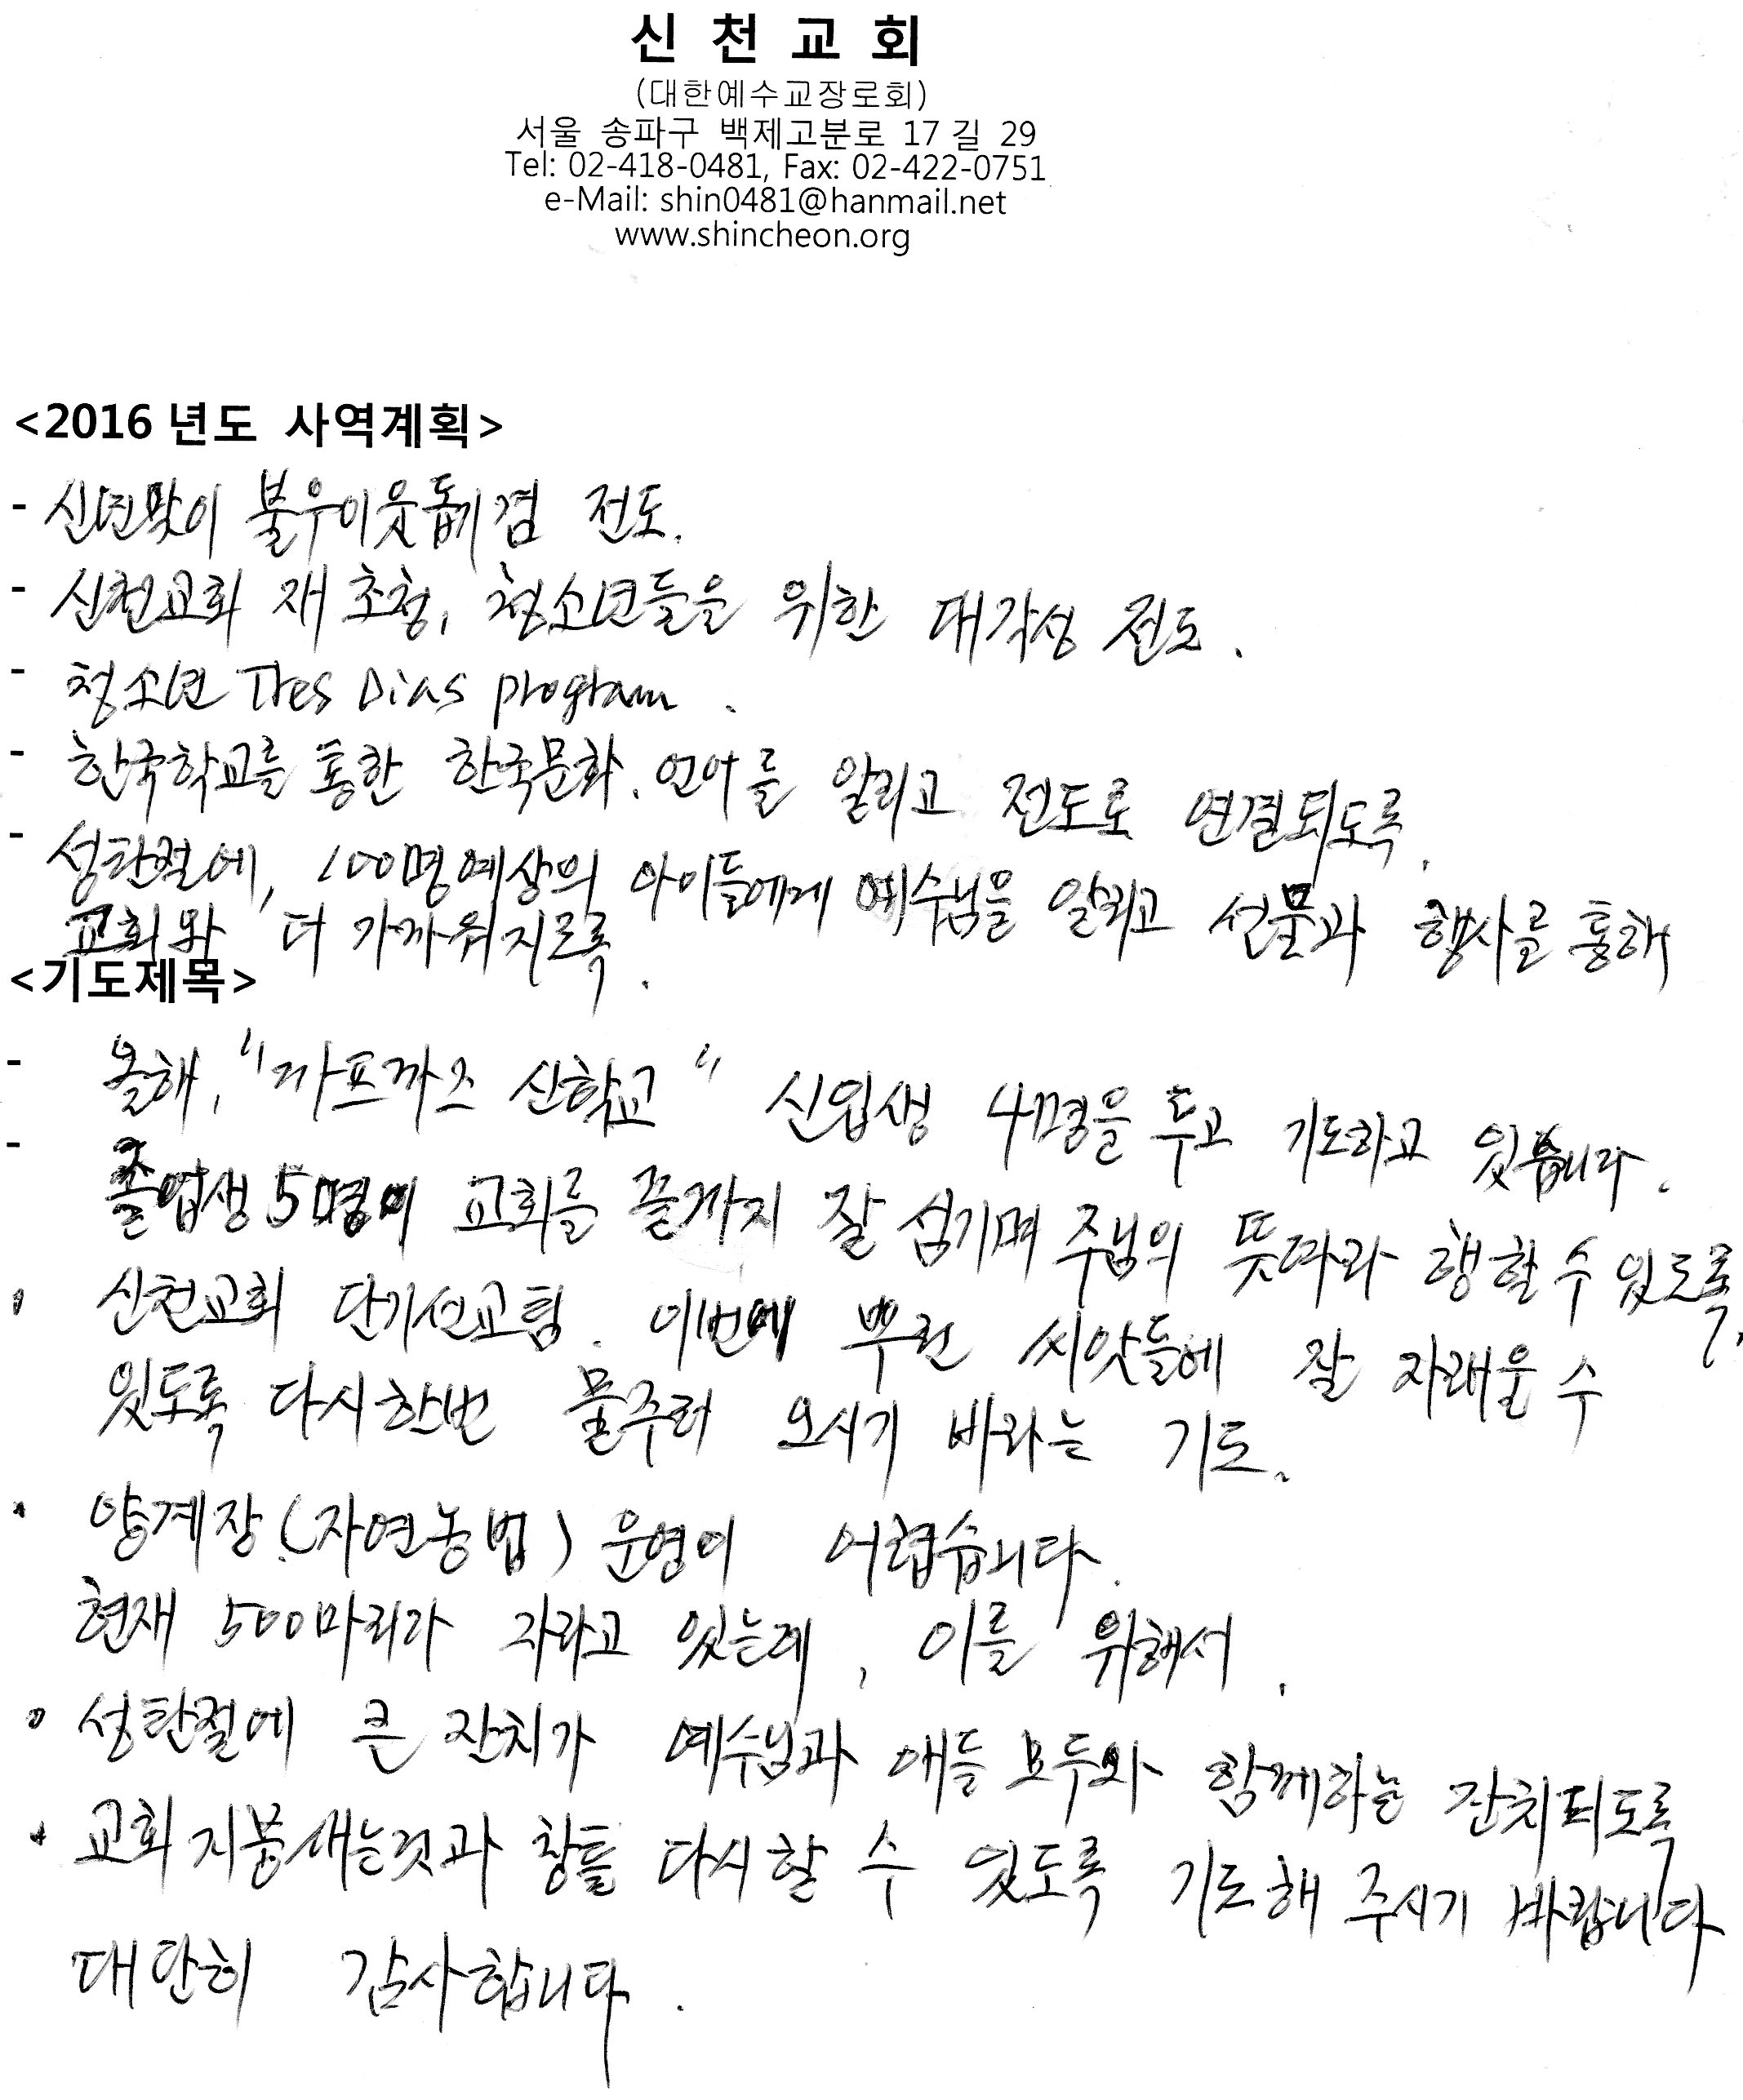 신 천 교 회
(대한예수교장로회)
서울 송파구 백제고분로 17길 29
Tel: 02-418-0481, Fax: 02-422-0751
e-Mail: shin0481@hanmail.net
www.shincheon.org
<2016년도 사역계획>
- 신년맞이 불우이웃돕기겸 전도.
- 신천교회 재 초청, 청소년들을 위한 대각성 전도.
- 청소년 Tres Dias program.
- 한국학교를 통한 한국문화. 언어를 알리고 전도로 연결되도록.
- 성탄절에, 100명예상의 아이들에게 예수님을 알리고 선물과 행사를 통해
교회와 더 가까워지도록.
<기도제목>
- 올해, "까프까즈 신학교" 신입생 4명을 두고 기도하고 있습니다.
- 졸업생 5명이 교회를 끝까지 잘 섬기며 주님의 뜻따라 행할 수 있도록,
신천교회 단기선교팀. 이번에 뿌린 씨앗들에 잘 자래울 수
있도록 다시한번 물주러 오시기 바라는 기도.
· 양계장(자연농법) 운영이 어렵습니다.
현재 500마리라 자라고 있는데, 이를 위해서.
· 성탄절에 큰 잔치가 예수님과 애들 모두와 함께하는 잔치되도록
· 교회 지붕새는것과 창틀 다시할 수 있도록 기도해 주시기 바랍니다
대단히 감사합니다.